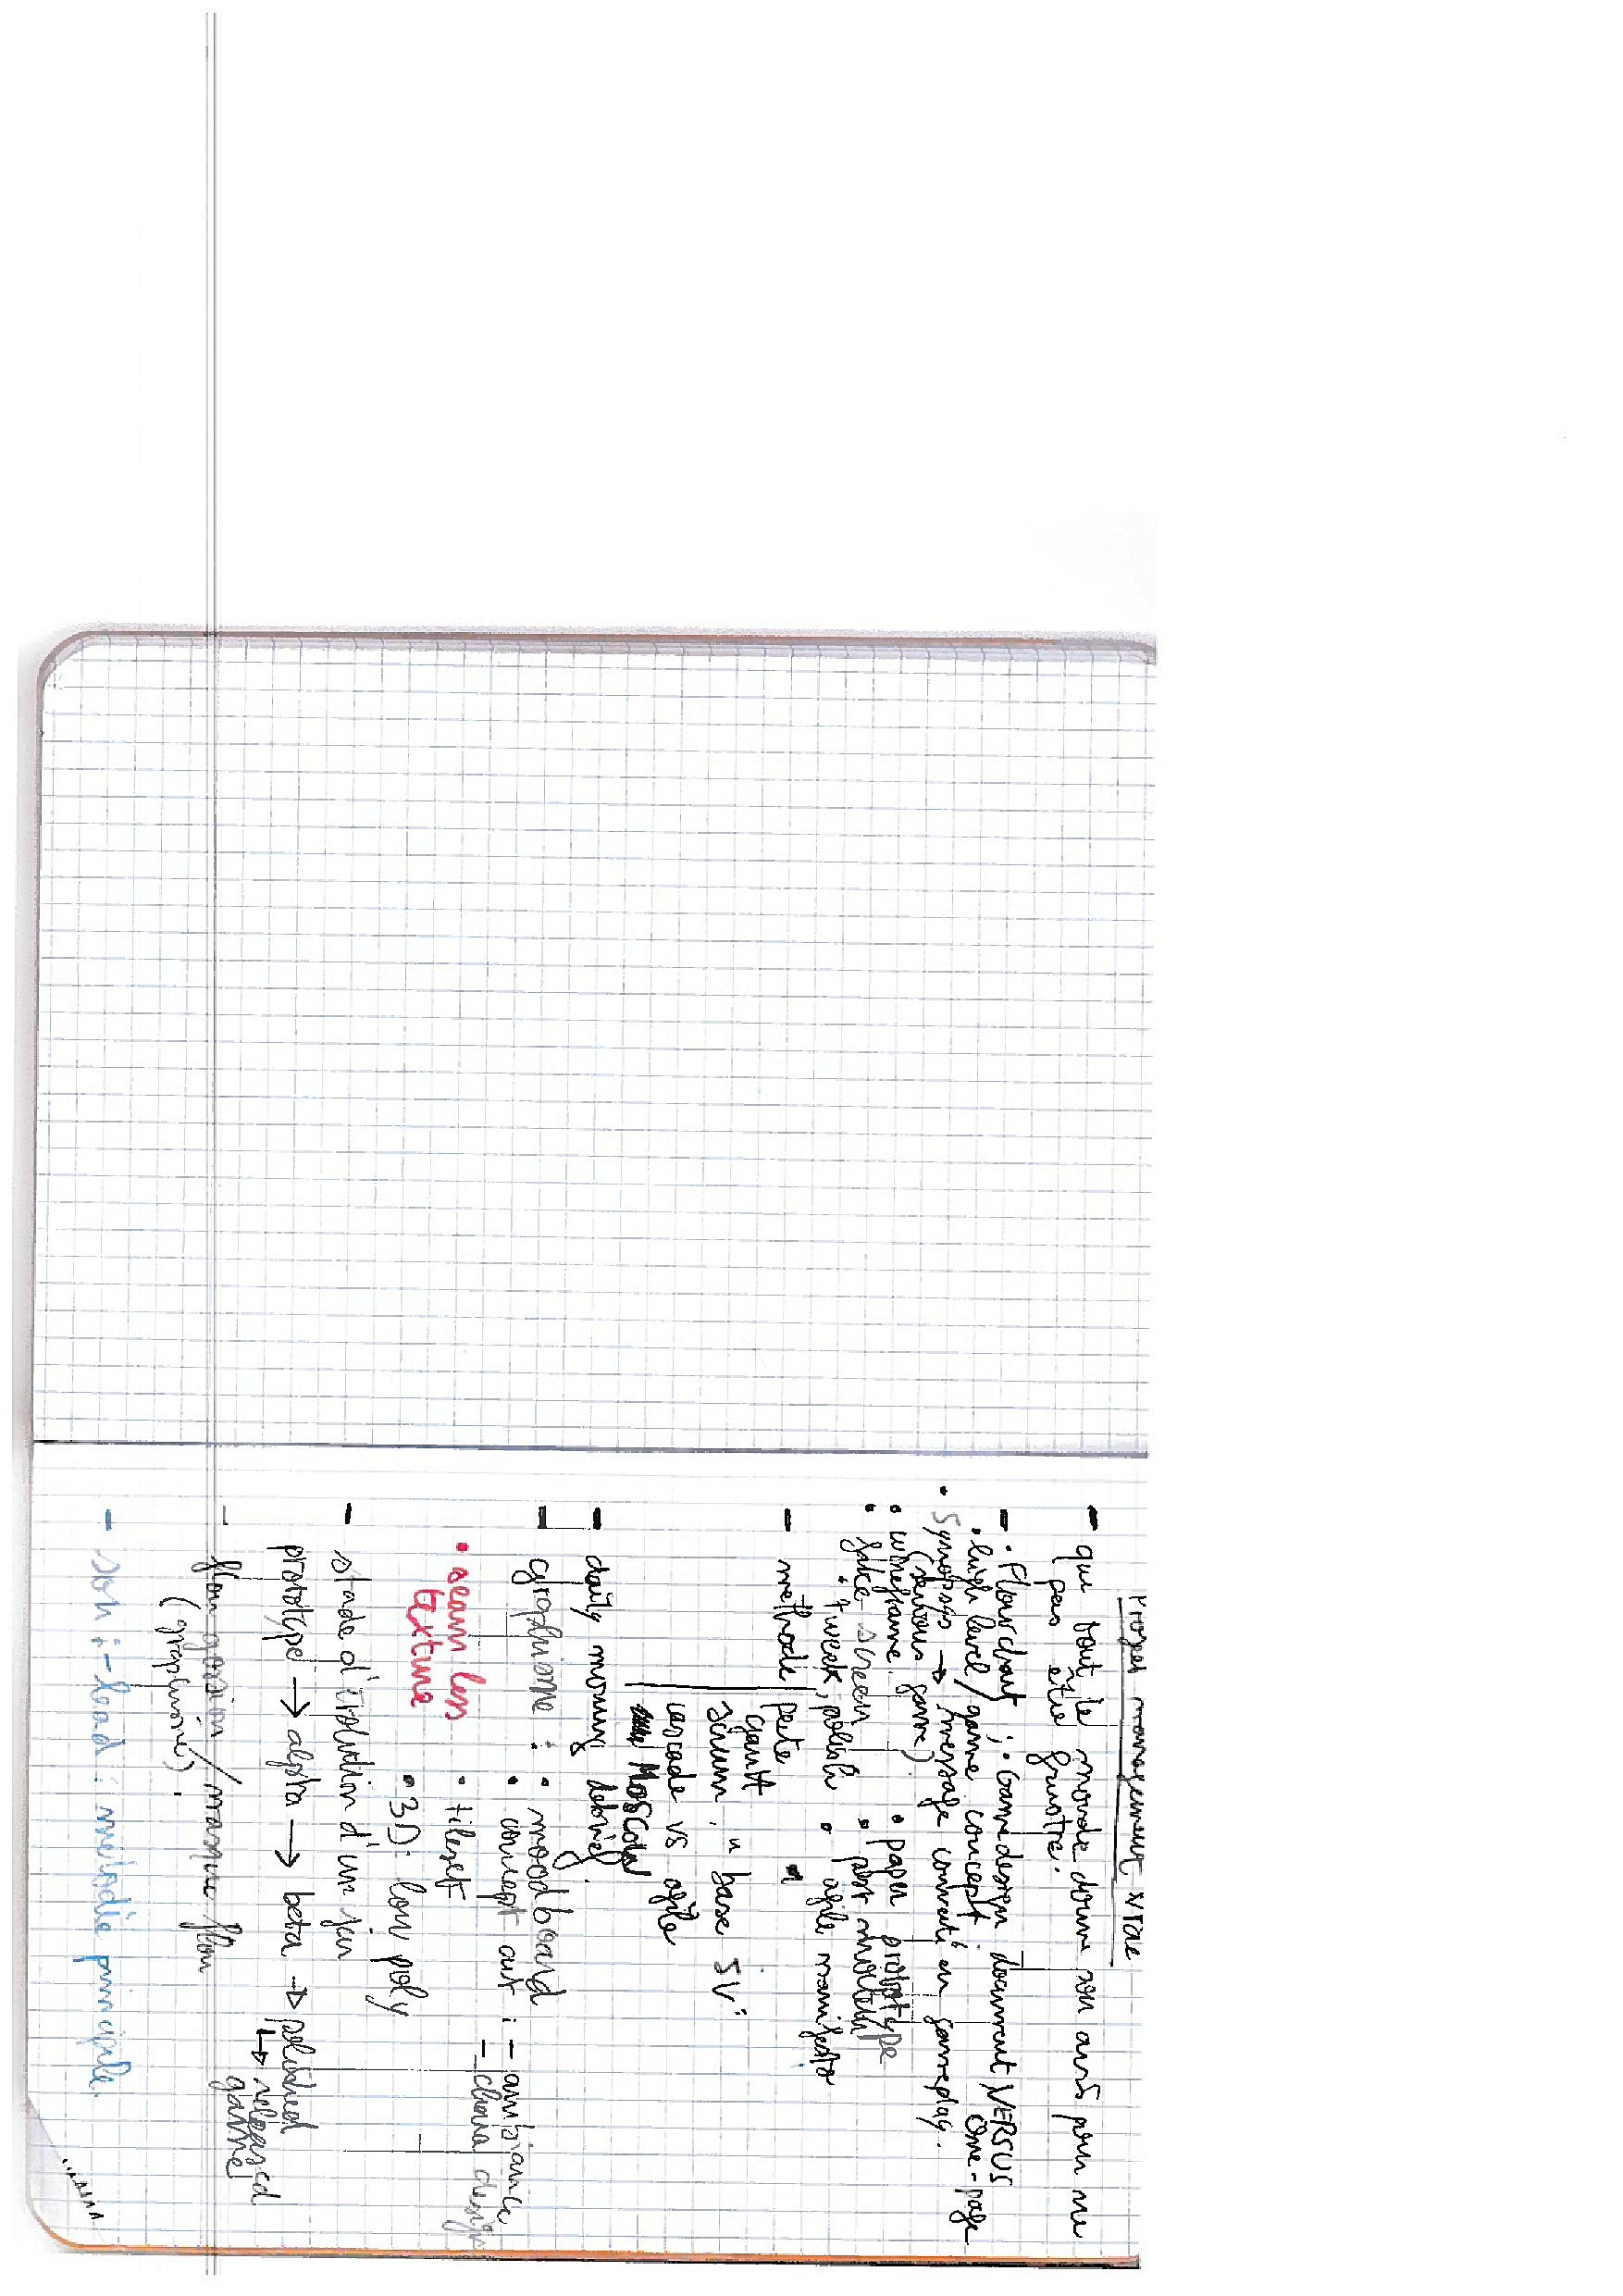 management
- que tout le monde donne son avis pour ne
pas être frustré.
- • Flow chart ; • Game design document VERSUS
• high level / game concept One-page
• Synopsis → message converti en gameplay.
(serious game)
• wireframe • paper prototype
• fake screen • post mortem
• tweak, polish • agile manifesto
- methode
gantt
scrum, "base SV"
cascade vs agile
MoSCoW
- daily morning debrief.
- graphisme : • mood board
• concept art : - ambiance
- chara design
• seam less • tileset
texture
• 3D : low poly
- stade d'évolution d'un jeu
prototype → alpha → beta → polished
↳ released
game
- / manque flow
(graphisme).
- : mélodie principale.